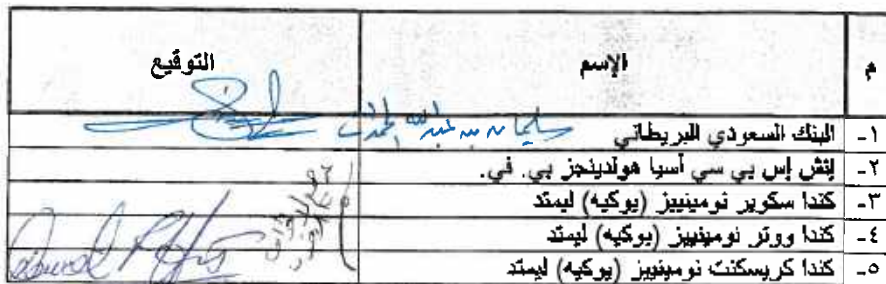 م الإسم التوقيع
١- البنك السعودي البريطاني سليمان بن عبدالله
٢- إتش إس بي سي آسيا هولدينجز بي. في.
٣- كندا سكوير نومينييز (يوكيه) ليمتد
٤- كندا ووتر نومينييز (يوكيه) ليمتد
٥- كندا كريسكنت نومينييز (يوكيه) ليمتد